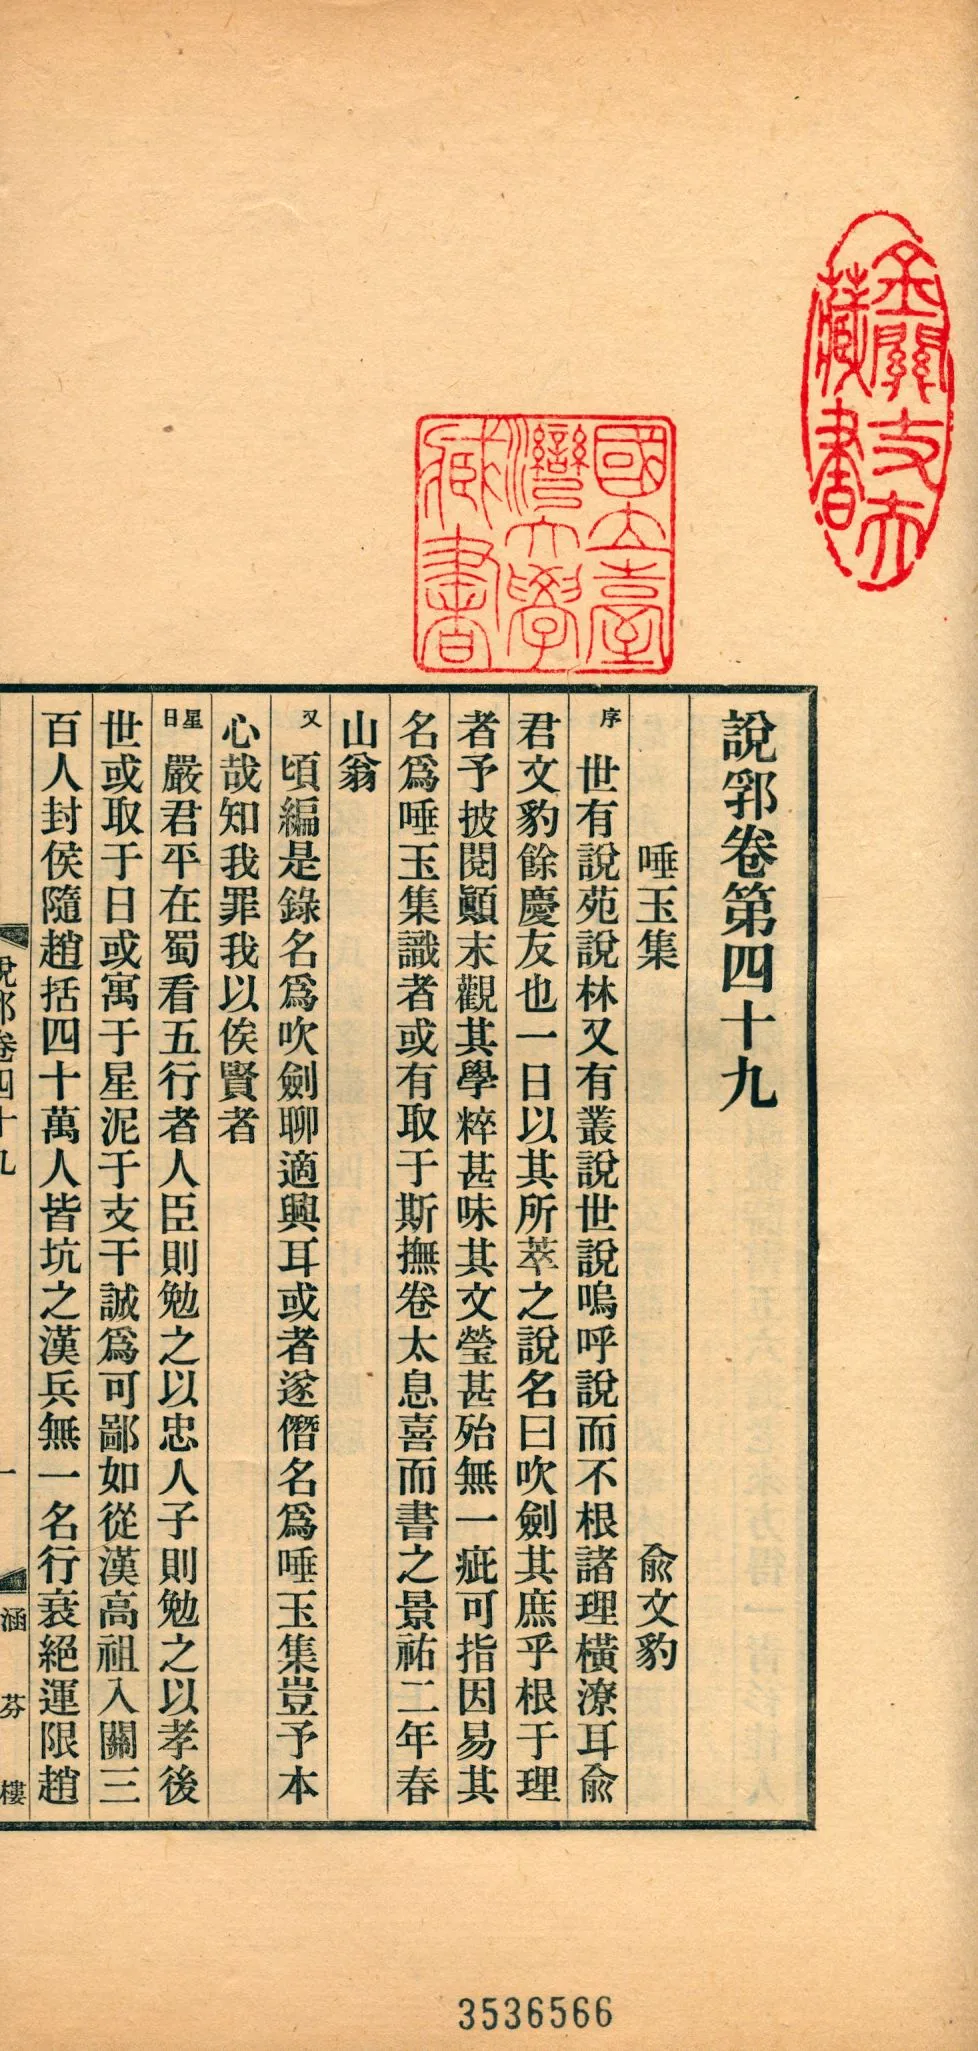 說郛卷第四十九
唾玉集 兪文豹
序 世有說苑說林又有叢說世說嗚呼說而不根諸理橫潦耳兪
君文豹餘慶友也一日以其所萃之說名曰吹劍其庶乎根于理
者予披閱顚末觀其學粹甚味其文瑩甚殆無一疵可指因易其
名爲唾玉集識者或有取于斯撫卷太息喜而書之景祐二年春
山翁
又 頃編是錄名爲吹劍聊適興耳或者遂僭名爲唾玉集豈予本
心哉知我罪我以俟賢者
星日 嚴君平在蜀看五行者人臣則勉之以忠人子則勉之以孝後
世或取于日或寓于星泥于支干誠爲可鄙如從漢高祖入關三
百人封侯隨趙括四十萬人皆坑之漢兵無一名行衰絕運限趙
說郛卷四十九 一 涵芬樓
國立臺灣大學藏書
藏書
3536566